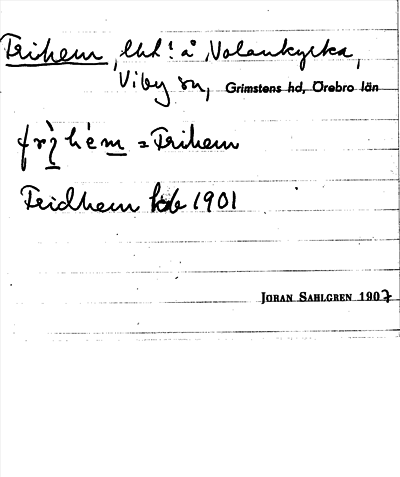 Frihem, lht! å Volankyrka,
Viby sn, Grimstens hd, Örebro län
frìhém = Frihem
Fridhem kb 1901
JÖRAN SAHLGREN 1907